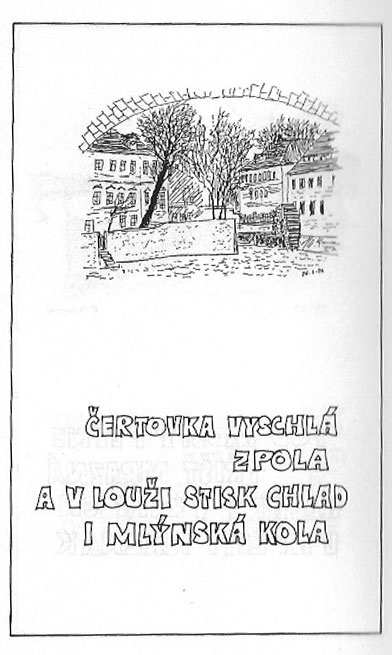 ČERTOVKA VYSCHLÁ
ZPOLA
A V LOUŽI STISK CHLAD
I MLÝNSKÁ KOLA